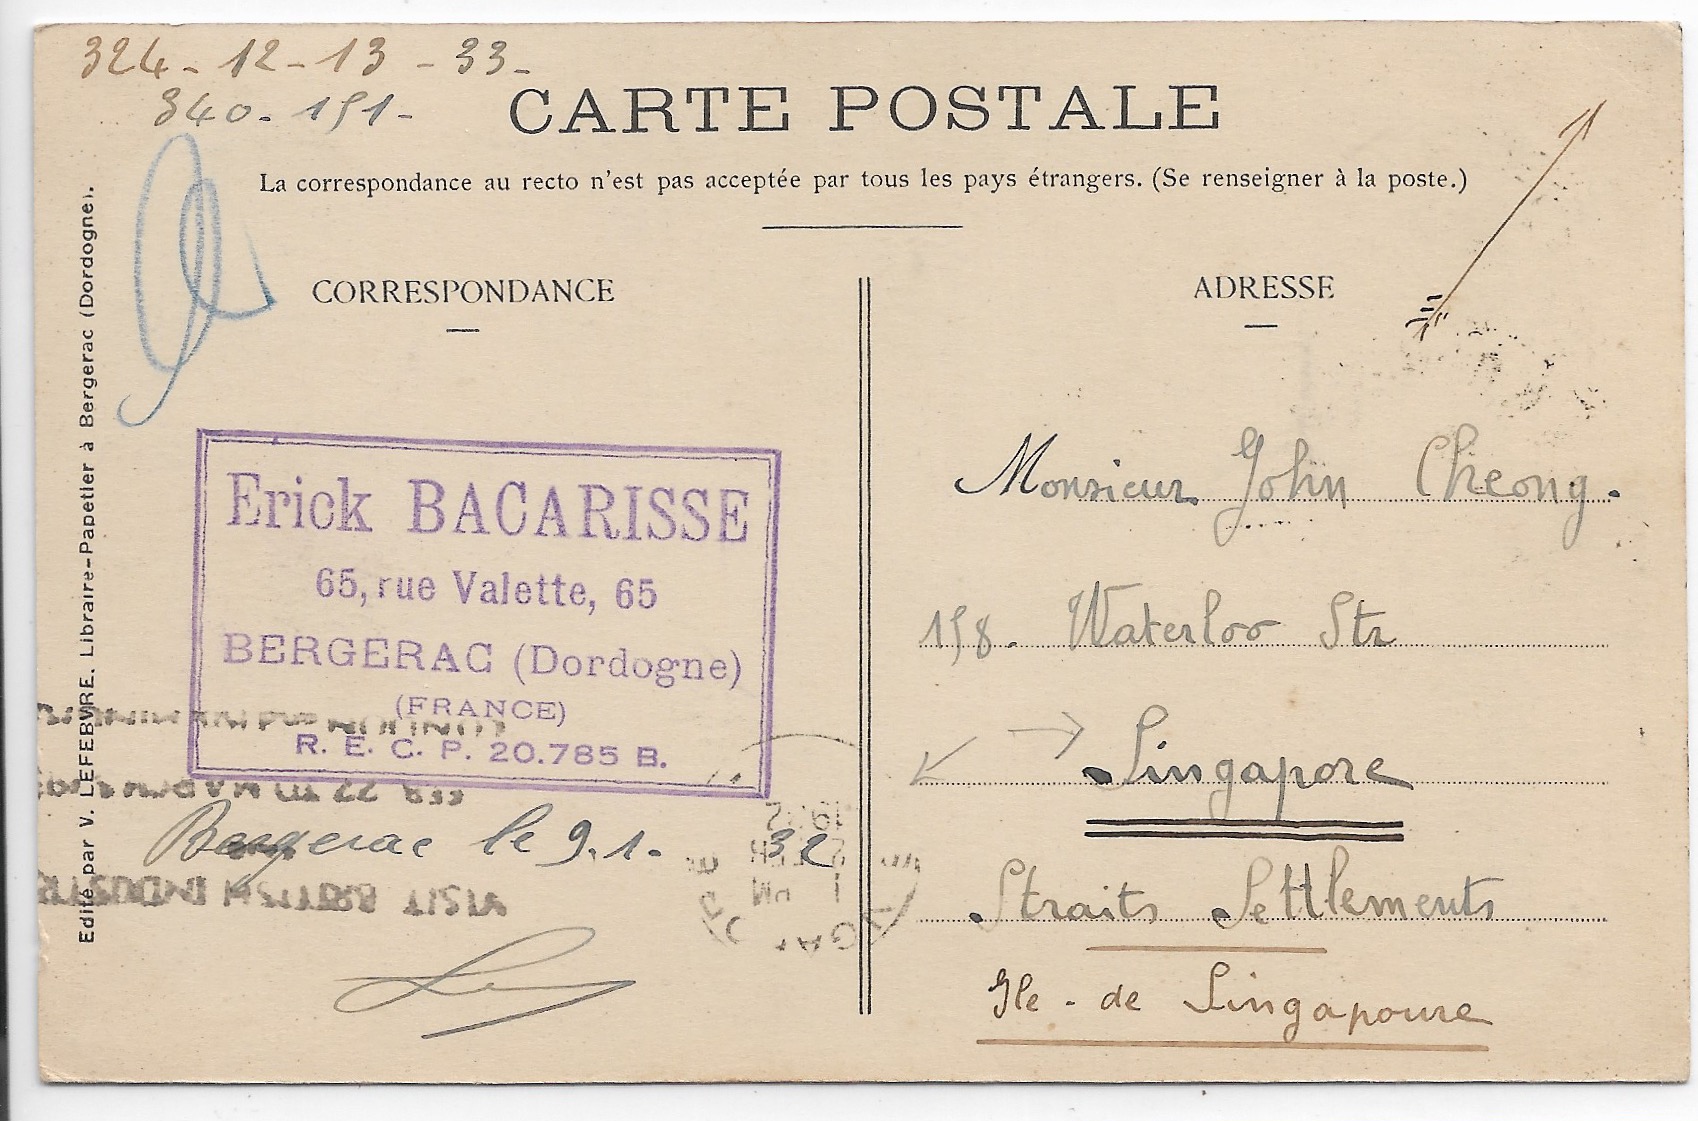 324 - 12 - 13 - 33 -
340 - 151 -
CARTE POSTALE
La correspondance au recto n'est pas acceptée par tous les pays étrangers. (Se renseigner à la poste.)
CORRESPONDANCE
ADRESSE
Edité par V. LEFEBVRE. Libraire-Papetier à Bergerac (Dordogne).
Erick BACARISSE
65, rue Valette, 65
BERGERAC (Dordogne)
(FRANCE)
R. E. C. P. 20.785 B.
LONDON
FEB 22 TO MARCH
VISIT BRITISH INDUSTR
Bergerac le 9.1. 32
PM
Monsieur John Cheong.
158. Waterloo Str
Singapore
Straits Settlements
Ile - de Singapoure